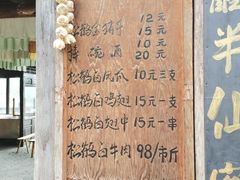 松鹤金狮牛 12元
15元
摔碗酒 10元
20元
松鹤白凤爪 10元三支
松鹤白鸡翅 15元一支
松鹤白翅中 15元一串
松鹤白牛肉 98/市斤
半仙